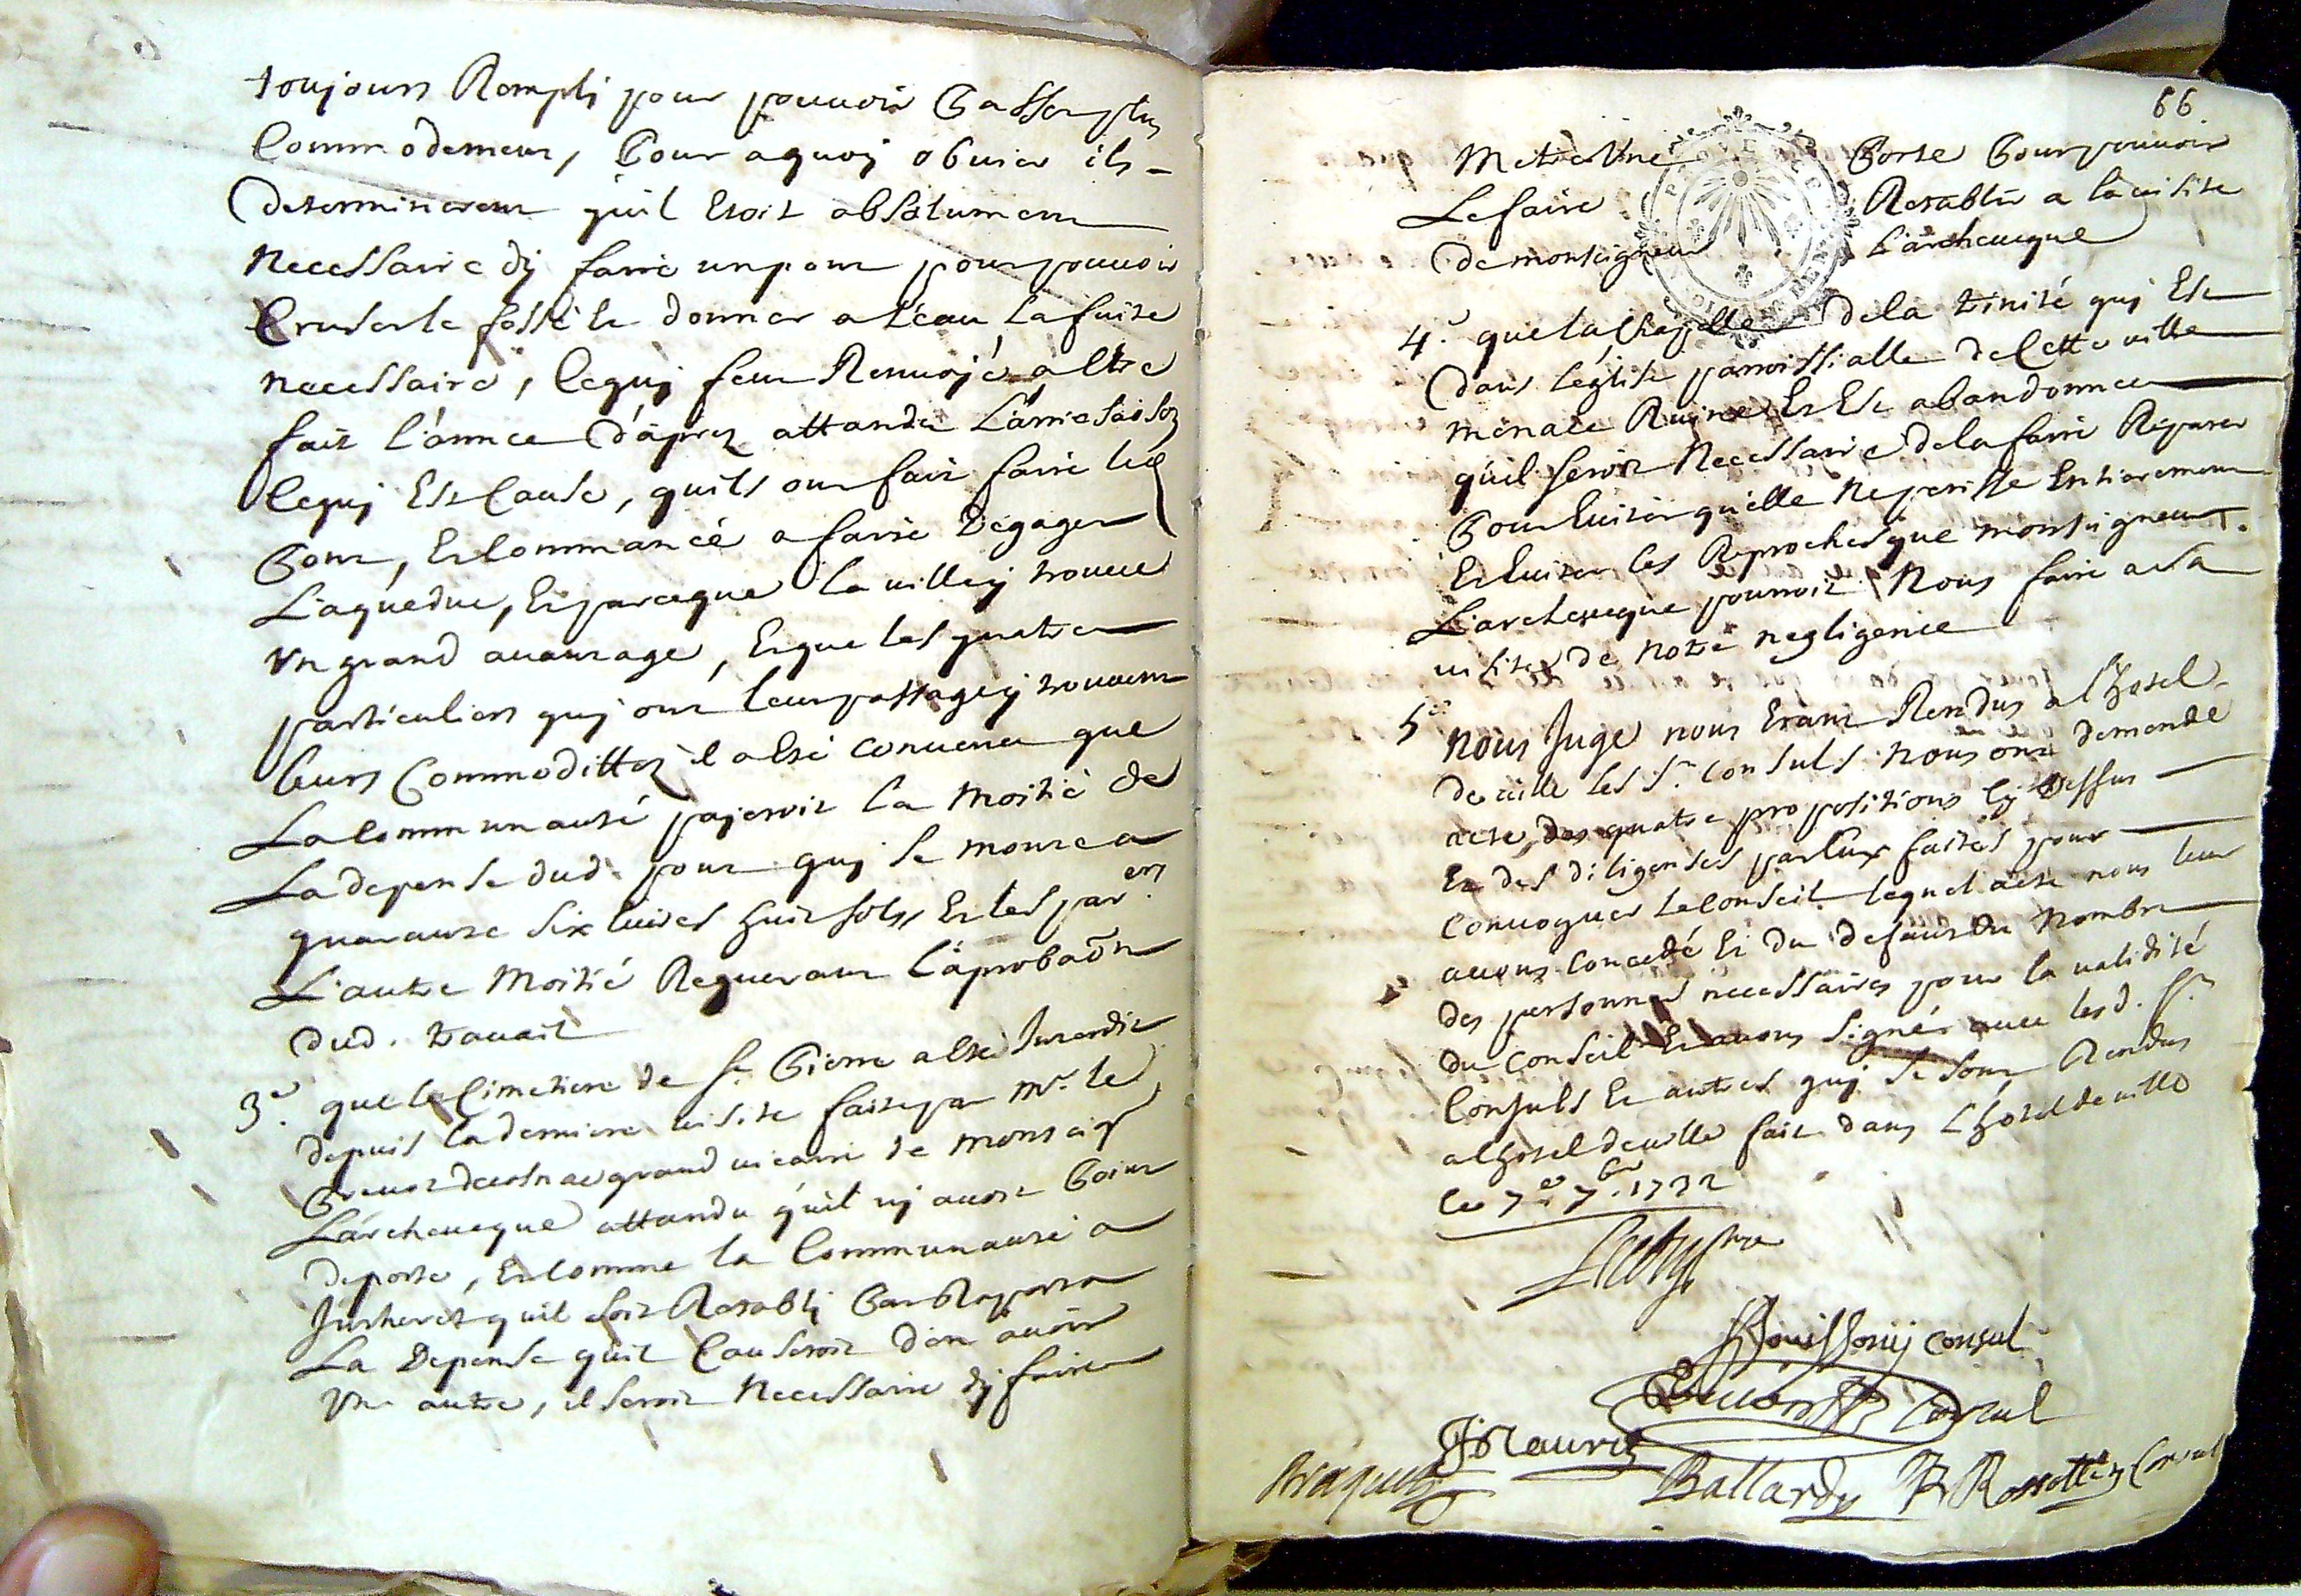 toujours Rempli pour pouuoir Passer plus
Commodement, Pour aquoj obuier ils
determinerent quil Etoit absolument
necessaire dÿ faire un pont pour pouuoir
Cruser le fossé Et donner a l'eau la fuite
necessaire, Cequj feut Renuojé a Etre
fait l'année d'áprez attandu L'arriesaison
Cequj Est Cause, quils ont fait faire led
Pont, Et Commancé a faire degager
L'aqueduc, Et parceque la uille ÿ trouue
Un grand auantage, Et que les quatre
particuliers quj ont leur passage ÿ trouuent
leurs Commodittez il a Esté conuenu que
La Communauté pajeroit la Moitié de
La depense dud. pont quj se monte a
quarante six liures huit sols, Et les par.ers
L'autre Moitié Requerant L'áprobaõn
dud. trauail
3.e que le Cimetiere de St Pierre a Esté Interdit
depuis la derniere uisite faite par Mr. le
grand uicaire de Monseigr
L'archeueque attandu qu'il nÿ auoit Point
de porte, Et Comme la Communauté a
Intheret quil soit Retabli Par Raport a
La Depense quil Causeroit d'en auoir
Un autre, il seroit Necessaire dÿ faire
66.
Metre Une Porte Pour pouuoir
Le faire Retablir a la uisite
de monseigneur L'archeueque
PROVENCE
4.e que la Chapelle de la trinité quj Est
dans l'église parroissialle de Cette uille
menace Ruine Et Est abandonnee
qu'il seroit Necessaire de la faire Reparer
Pour Euiter qu'elle Ne perisse Entierement
Et Euiter les Reproches que monseigneur
L'archeueque pourroit Nous faire a sa
uisite de notre negligence
5.e Nous Juge nous Etant Rendus a l'hotel
de uille les Srs consuls nous ont demandé
acte des quatre propositions Cÿ Dessus
Et des diligenses par Eux faites pour
Conuoquer le Conseil lequel acte nous leur
auons Concedé Et du defaut du Nombre
des personnes necessaires pour la ualidité
du Conseil Et auons signés auec les d. Srs
Consuls Et autres quj se sont Rendus
a lhotel de uille fait dans Lhotel de uille
le 7e 7bre 1732
Bouissonÿ consul
consul
JMaurin
Braquet
Ballardÿ
Consul